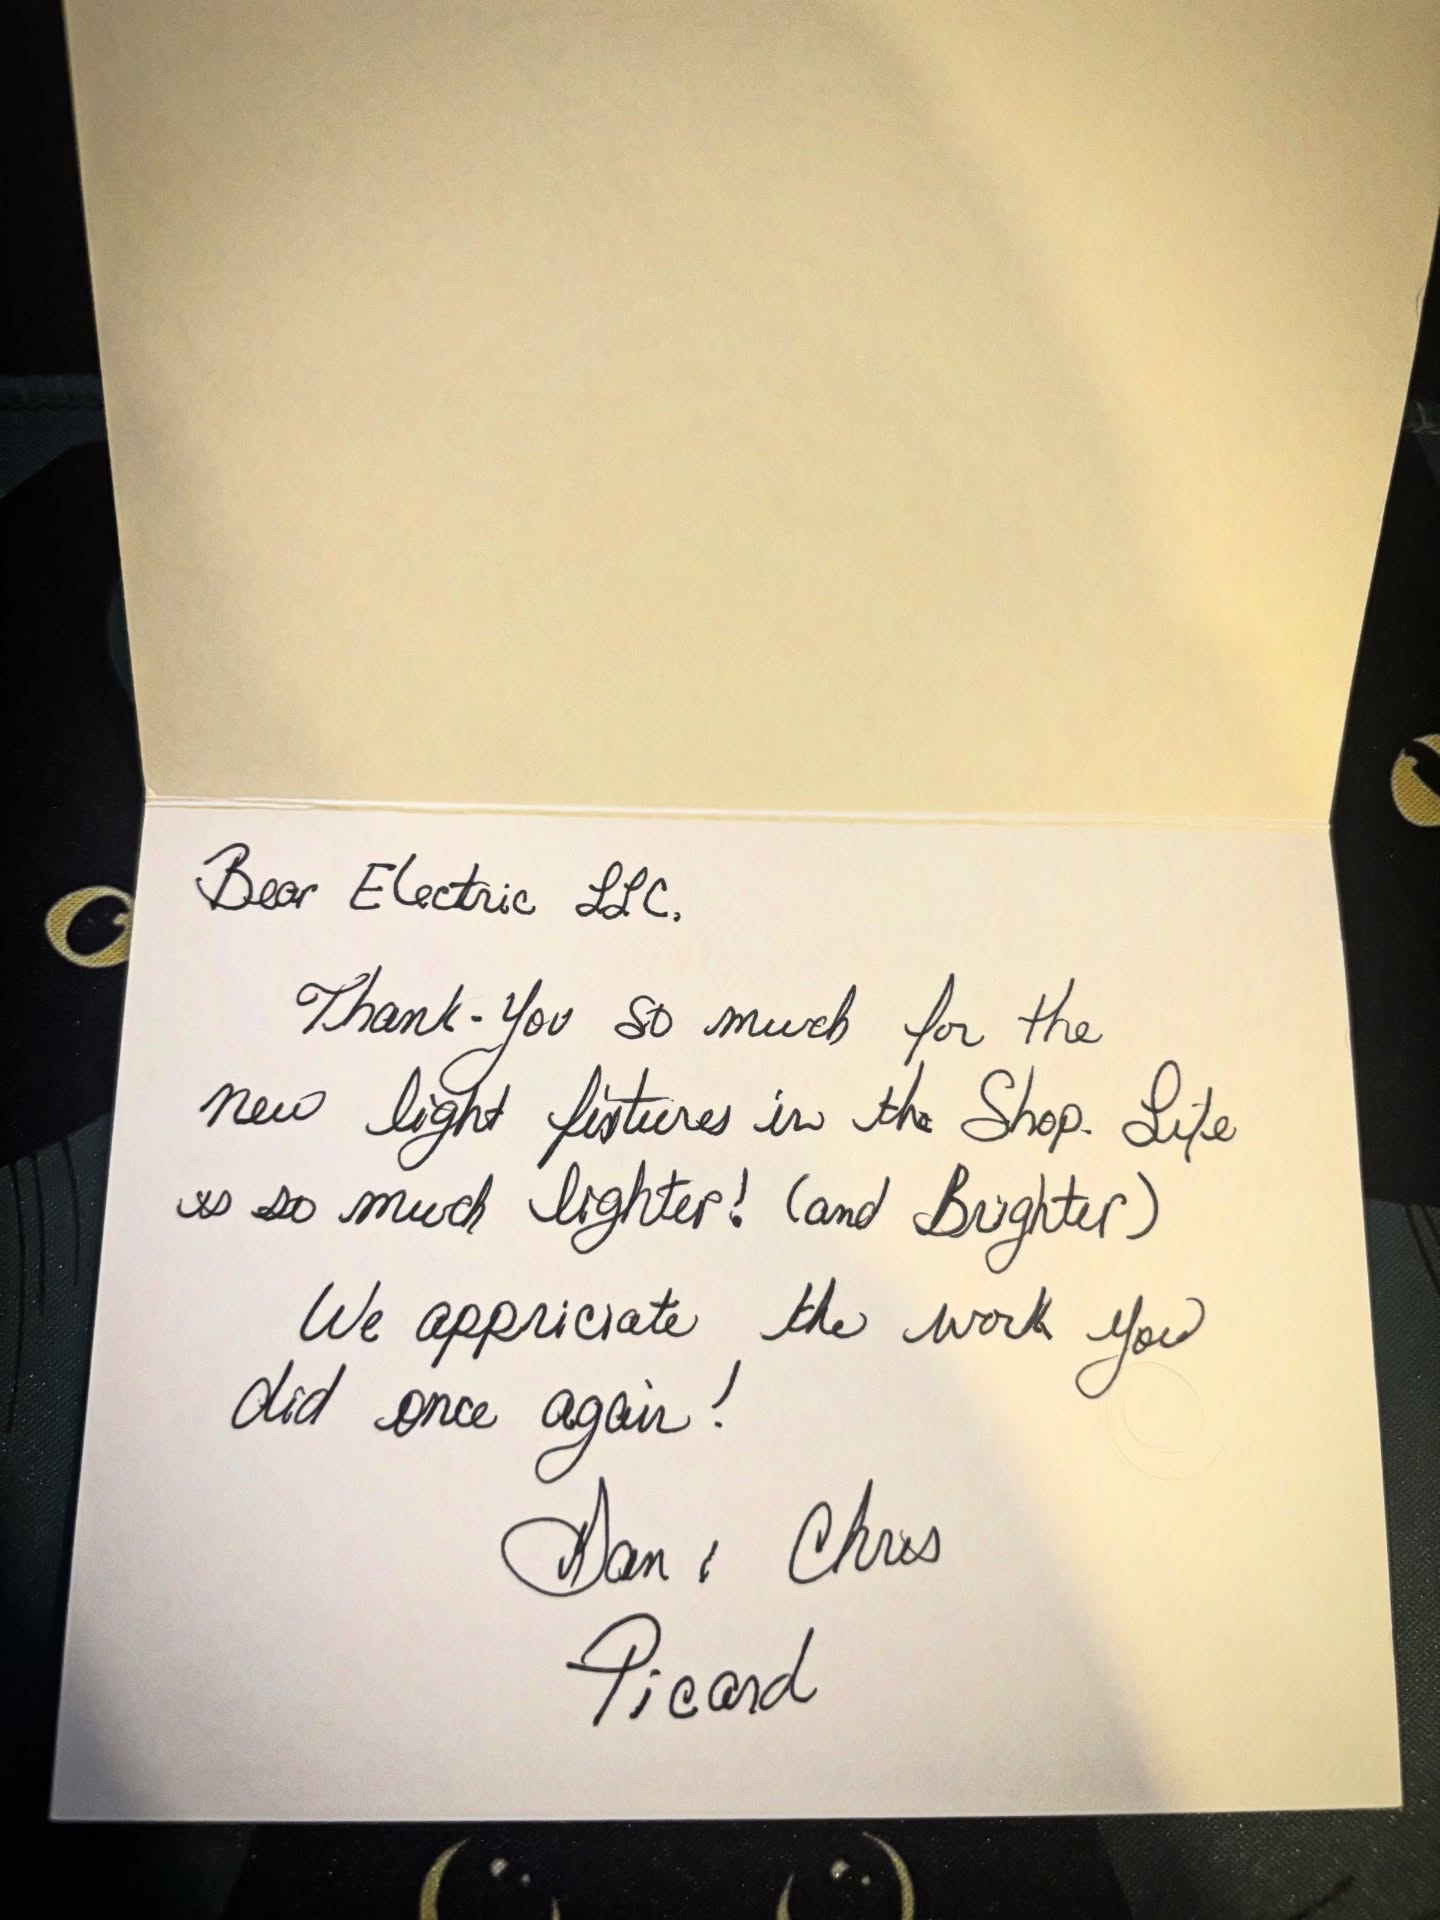 Bear Electric LLC.
Thank-You so much for the
new light fixtures in the Shop. Life
is so much lighter! (and Brighter)
We appriciate the work you
did once again!
Dan & Chris
Picard